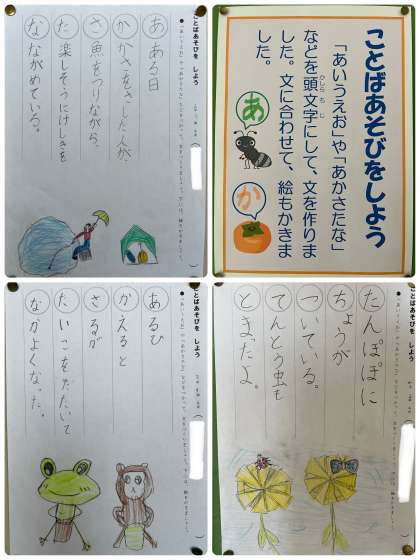 ことばあそびを しよう
あ ある日
か かさをさした人が、
さ 魚をつりながら、
た 楽しそうにけしきを
な ながめている。
ことばあそびをしよう
「あいうえお」や「あかさたな」
などを頭文字にして、文を作りま
した。文に合わせて、絵もかきま
した。
あ
か
ことばあそびを しよう
あるひ
かえると
さるが
たいこをたたいて
なかよくなった。
ことばあそびを しよう
たんぽぽに
ちょうが
ついている。
てんとう虫も
とまったよ。